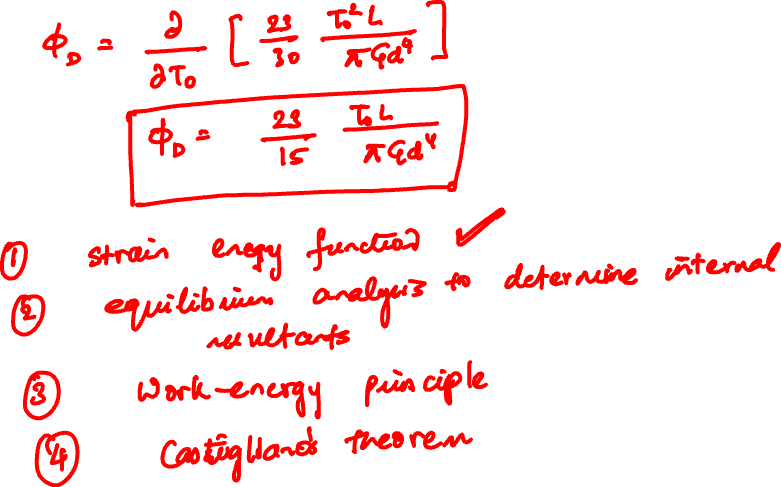 ϕ_D = ∂/∂T₀ [ 23/30 T₀²L/πGd⁴ ]
ϕ_D = 23/15 T₀L/πGd⁴
① strain energy function ✓
② equilibrium analysis to determine internal
resultants
③ Work-energy principle
④ Castigliano's theorem